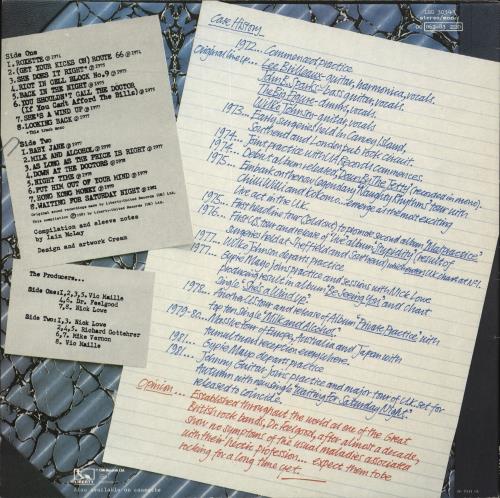 LBG 30343
stereo/mono
Side One
1. ROXETTE Ⓟ 1974
2. (GET YOUR KICKS ON) ROUTE 66 Ⓟ 1974
3. SHE DOES IT RIGHT* Ⓟ 1974
4. RIOT IN CELL BLOCK No.9 Ⓟ 1975
5. BACK IN THE NIGHT Ⓟ 1975
6. YOU SHOULDN'T CALL THE DOCTOR
(If You Cant Afford The Bills) Ⓟ 1975
7. SHE'S A WIND UP Ⓟ 1977
8. LOOKING BACK Ⓟ 1977
*This track mono
Side Two
1. BABY JANE Ⓟ 1977
2. MILK AND ALCOHOL Ⓟ 1978
3. AS LONG AS THE PRICE IS RIGHT Ⓟ 1977
4. DOWN AT THE DOCTORS Ⓟ 1978
5. NIGHT TIME Ⓟ 1978
6. PUT HIM OUT OF YOUR MIND Ⓟ 1979
7. HONG KONG MONEY Ⓟ 1979
8. WAITING FOR SATURDAY NIGHT Ⓟ 1981
Original sound recordings made by Liberty-United Records (UK) Ltd.
This compilation Ⓟ 1981 by Liberty-United Records (UK) Ltd.
Compilation and sleeve notes
by Iain McLay
Design and artwork Cream
The Producers...
Side One: 1,2,3,5. Vic Maille
4,6. Dr. Feelgood
7,8. Nick Lowe
Side Two: 1,3. Nick Lowe
2,4,5. Richard Gottehrer
6,7. Mike Vernon
8. Vic Maille
Case History
1972... Commenced practice.
Original line up... Lee Brilleaux - guitar, harmonica, vocals.
John B. Sparks - bass guitar, vocals.
The Big Figure - drums, vocals.
Wilko Johnson - guitar, vocals.
1973... Early surgeries held in Canvey Island,
Southend and London pub rock circuit.
1974... Joint practice with UA Records commences.
1974... Debut album released "Down By The Jetty" (recorded in mono).
1975... Embark on the now legendary "Naughty Rhythms" tour with
Chilli Willi and Kokomo... emerge as the most exciting
live act in the U.K.
1975... First headline tour (sold out) to promote second album "Malpractice"
1976... First US tour and release of 'live' album "Stupidity" (result of
surgeries held at Sheffield and Southend) which enters UK chart at N°1.
1977... Wilko Johnson departs practice.
1977... Gypie Mayo joins practice and sessions with Nick Lowe
producing result in album "Be Seeing You" and chart
single "She's a Wind Up".
1978... Another US tour and release of Album "Private Practice" with
top ten single "Milk and Alcohol".
1979-80... Massive tour of Europe, Australia and Japan with
tumultuous reception everywhere.
1981... Gypie Mayo departs practice.
1981... Johnny Guitar joins practice and major tour of U.K. set for
Autumn with new single "Waiting for Saturday Night"
released to coincide.
Opinion... Established throughout the world as one of the great
British rock bands, Dr. Feelgood, after almost a decade,
show no symptoms of the usual maladies associated
with their hectic profession... expect them to be
rocking for a long time yet.
LIBERTY
Also available on cassette